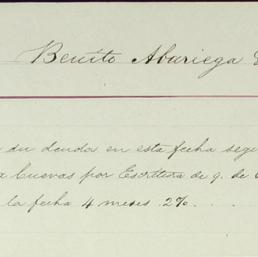 Benito Aburiega
su deuda en esta fecha seg
a Cuevas por Escritura de q. de
la fecha 4 meses 2%